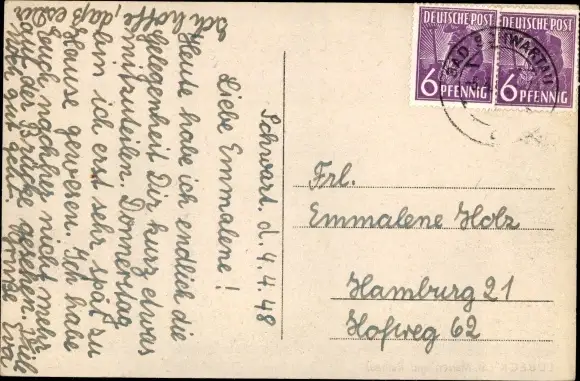 DEUTSCHE POST
6 PFENNIG
DEUTSCHE POST
6 PFENNIG
BAD SCHWARTAU
Schwart. d. 4.4.48
Liebe Emmalene!
Heute habe ich endlich die
Gelegenheit Dir kurz etwas
mitzuteilen. Donnerstag
bin ich erst sehr spät zu
Hause gewesen. Ich habe
Euch nachher nicht mehr
auf der Brücke gesehen. Viele
Grüße Eva
Ich hoffe, daß es Dir
Frl.
Emmalene Holz
Hamburg 21
Hofweg 62
LÜBECK